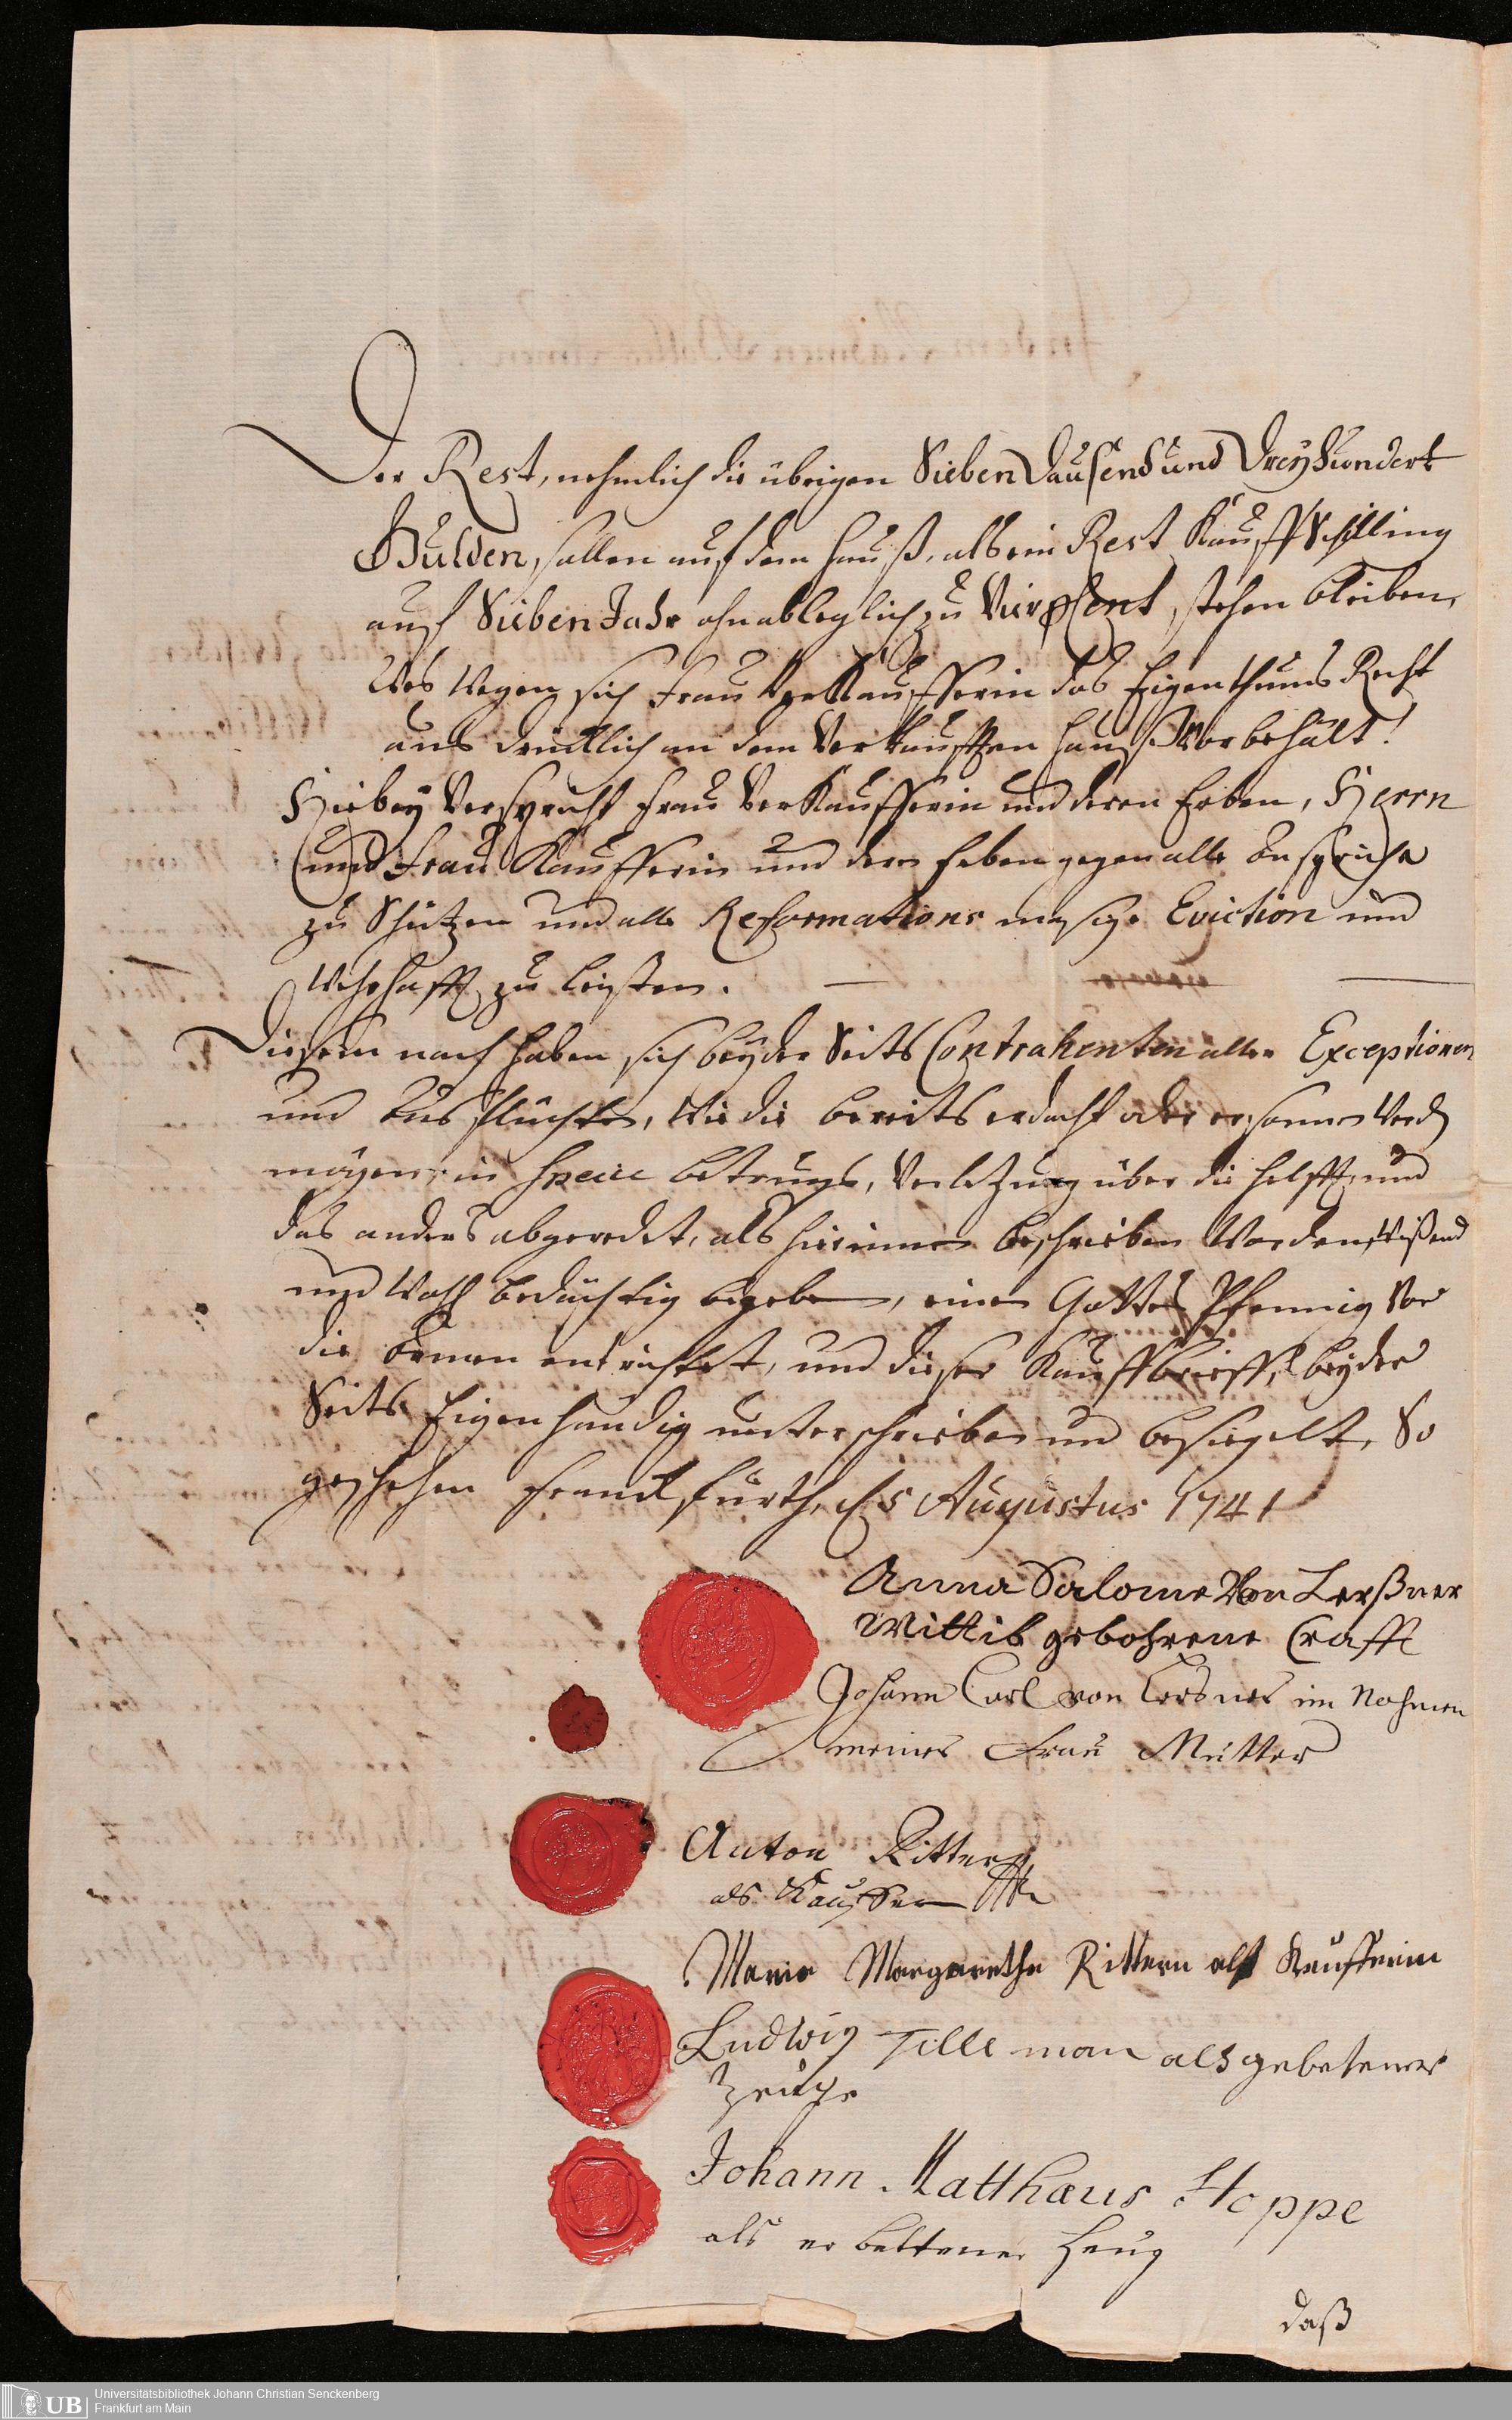 Der Rest, nehmlich die übrigen Sieben Dausend und Dreyhundert
Gulden, sollen auf dem Hauß, als ein Rest Kauff Schilling
auf Sieben Jahr ohnableglich zu Vier pCent, stehen bleiben,
Wes Wegen sich Frau Verkäufferin das Eigenthums Recht
aus drücklich an dem Verkaufften Hauß Vorbehält!
Hiebey Verspricht Frau Verkäufferin und deren Erben, Herrn
und Frau Käufferin und dern Erben gegen alle Ansprüche
zu Schützen und alle Reformations mesige Eviction und
Wehrschafft zu leisten.
Diesem nach haben sich beyder Seits Contrahenten aller Exceptionen
und Ausflüchten, Wie die bereits erdacht oder ersonnen Werden
mögen, in Specie betrugs, Verletzung über die helffte und
das anders abgeredet, als hierinnen beschrieben Worden, Wißend
und Wohl bedächtig begeben, einen Gottes Pfennig Vor
die Armen entrichtet, und dieser Kauffbrieff, beyder
Seits Eigenhändig unterschrieben und besiegelt, So
geschehen Franckfurth, d 5 Augustus 1741
Anna Salome Von Lerßner
Wittib gebohrene Crafft
Johann Carl von Lersner im Nahmen
meiner Frau Mutter
Anton Ritter
als Kauffer
Maria Margaretha Rittern als Kaufferin
Ludwig Tilleman als gebetener
Zeuge
Johann Matthæus Hoppe
als er bettener Zeug
daß
UB
Universitätsbibliothek Johann Christian Senckenberg
Frankfurt am Main